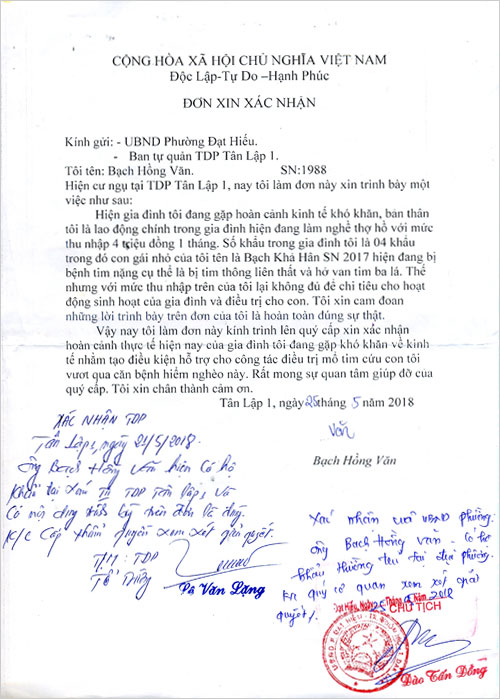 CỘNG HÒA XÃ HỘI CHỦ NGHĨA VIỆT NAM
Độc Lập-Tự Do –Hạnh Phúc
ĐƠN XIN XÁC NHẬN
Kính gửi: - UBND Phường Đạt Hiếu.
- Ban tự quản TDP Tân Lập 1.
Tôi tên: Bạch Hồng Văn. SN:1988
Hiện cư ngụ tại TDP Tân Lập 1, nay tôi làm đơn này xin trình bày một
việc như sau:
Hiện gia đình tôi đang gặp hoàn cảnh kinh tế khó khăn, bản thân
tôi là lao động chính trong gia đình hiện đang làm nghề thợ hồ với mức
thu nhập 4 triệu đồng 1 tháng. Số khẩu trong gia đình tôi là 04 khẩu
trong đó con gái nhỏ của tôi tên là Bạch Khả Hân SN 2017 hiện đang bị
bệnh tim nặng cụ thể là bị tim thông liên thất và hở van tim ba lá. Thế
nhưng với mức thu nhập trên của tôi lại không đủ để chi tiêu cho hoạt
động sinh hoạt của gia đình và điều trị cho con. Tôi xin cam đoan
những lời trình bày trên đơn của tôi là hoàn toàn đúng sự thật.
Vậy nay tôi làm đơn này kính trình lên quý cấp xin xác nhận
hoàn cảnh thực tế hiện nay của gia đình tôi đang gặp khó khăn về kinh
tế nhằm tạo điều kiện hỗ trợ cho công tác điều trị mổ tim cứu con tôi
vượt qua căn bệnh hiểm nghèo này. Rất mong sự quan tâm giúp đỡ của
quý cấp. Tôi xin chân thành cảm ơn.
Tân Lập 1, ngày 25 tháng 5 năm 2018
Văn
Bạch Hồng Văn
XÁC NHẬN TDP
Tân Lập 1, ngày 21/5/2018.
Ông Bạch Hồng Văn hiện có hộ
khẩu tại TDP Tân Lập 1, và
có nội dung trên đơn là đúng.
K/C Cấp thẩm quyền xem xét giải quyết.
T/M: TDP
Tổ Trưởng
Văn Lạng
Xác nhận của UBND phường.
Ông Bạch Hồng Văn - có hộ
khẩu thường trú tại địa phương.
quý cơ quan xem xét giải
quyết.
Đạt Hiếu, Ngày 25 Tháng 5 Năm 2018
CHỦ TỊCH
Đào Tấn Đồng